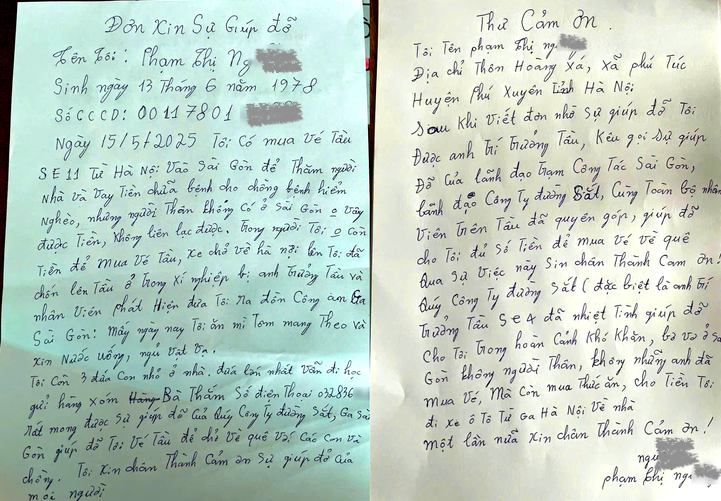 Đơn Xin Sự Giúp đỡ
Tên Tôi: Phạm Thị Ng
Sinh ngày 13 Tháng 6 năm 1978
Số CCCD: 00117801
Ngày 15/5/2025 Tôi Có mua vé Tàu
SE11 Từ Hà Nội Vào Sài Gòn để Thăm người
Nhà và Vay Tiền chữa bệnh cho chồng bệnh hiểm
Nghèo, nhưng người Thân không có ở Sài Gòn o Vây
được Tiền, không liên lạc được. Trong người Tôi o Còn
Tiền để mua Vé Tàu, xe chở về hà nội lên Tôi đã
chốn lên Tàu ở Trong xí nghiệp bị anh Trưởng Tàu và
nhân Viên Phát Hiện đưa Tôi Ra đồn Công an Ga
Sài Gòn: Mấy ngày nay Tôi ăn mì Tôm mang Theo và
xin Nước uống, ngủ Vật Vạ.
Tôi Còn 3 đứa Con nhỏ ở nhà, đứa lớn nhất vẫn đi học
gửi hàng xóm Bà Thắm Số điện Thoại 032836
Rất mong được Sự giúp đỡ Của Quý Công Ty đường Sắt, Ga Sài
Gòn giúp đỡ Tôi Vé Tàu để chở Về quê Với Các Con và
chồng. Tôi xin chân Thành Cảm ơn Sự giúp đỡ của
mọi người
Thư Cảm Ơn.
Tôi Tên phạm Thị ng
Địa chỉ Thôn Hoàng xá, xã phú Túc
Huyện Phú Xuyên Tỉnh Hà Nội
Sau khi Viết đơn nhờ Sự giúp đỡ Tôi
Được anh Trí Trưởng Tàu, Kêu gọi Sự giúp
Đỡ Của lãnh đạo Trạm Công Tác Sài Gòn,
lãnh đạo Công Ty đường Sắt, Cùng Toàn bộ nhân
Viên Trên Tàu đã quyên góp, giúp đỡ
cho Tôi đủ Số Tiền để mua Vé về quê
Qua Sự Việc này Sin chân Thành Cam ơn!
Quý Công Ty đường Sắt (đặc biệt là anh Trí
Trưởng Tàu SE4 đã nhiệt Tình giúp đỡ
Cho Tôi Trong hoàn Cảnh Khó Khăn, bơ vơ ở Sài
Gòn không người Thân, không những anh đã
mua Vé, Mà Còn mua Thức ăn, cho Tiền Tôi
đi xe ô Tô Từ Ga Hà Nội Về nhà
một lần nữa Xin chân Thành Cảm ơn!
phạm Thị ng